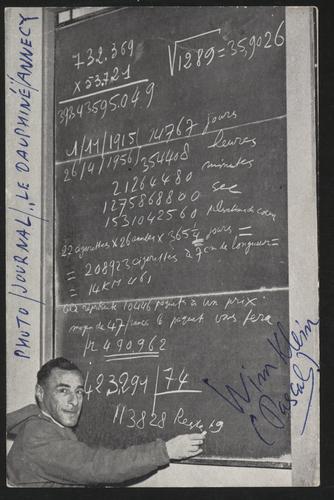 PHOTO/JOURNAL/„LE DAUPHINÉ"/ANNECY
732.369
× 53.721
39343595.049
√1289 = 35,9026
1/11/1915/ 14767 jours
26/4/1956/ 354408 heures
21264480 minutes
1275868800 sec
1531042560
22 cigarettes × 26 années × 365 1/4 jours =
= 208923 cigarettes à 7 cm de longueur =
= 14KM 461
10446 paquets à un prix:
47 francs le paquet vous fera
490962
423291 | 74
113828 Reste 19
Wim Klein
(Pascal)